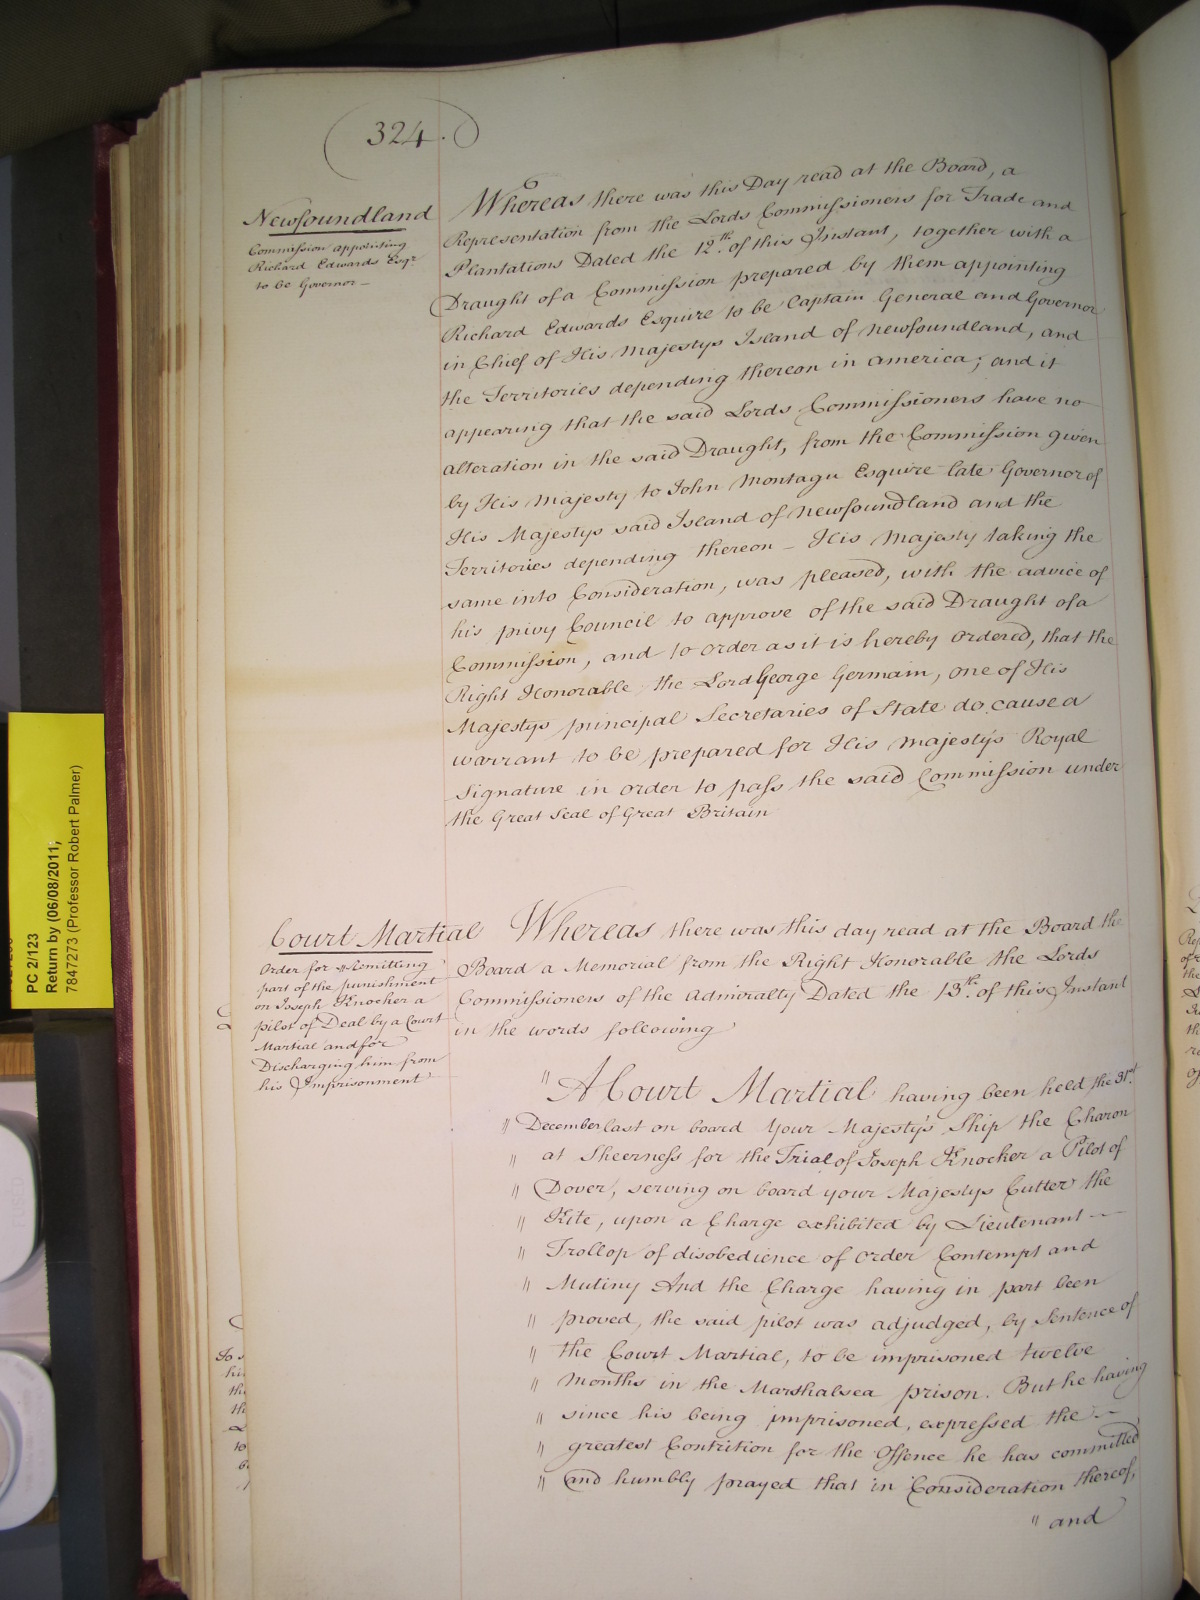 324.
Newfoundland
Commission appointing
Richard Edwards Esqr
to be Governor —
Whereas there was this Day read at the Board, a
Representation from the Lords Commissioners for Trade and
Plantations Dated the 12th. of this Instant, together with a
Draught of a Commission prepared by them appointing
Richard Edwards Esquire to be Captain General and Governor
in Chief of His Majestys Island of Newfoundland, and
the Territories depending thereon in America; and it
appearing that the said Lords Commissioners have no
alteration in the said Draught, from the Commission given
by His Majesty to John Montagu Esquire late Governor of
His Majestys said Island of Newfoundland and the
Territories depending thereon — His Majesty taking the
same into Consideration, was pleased, with the advice of
his privy Council to approve of the said Draught of a
Commission, and to order as it is hereby ordered, that the
Right Honorable the Lord George Germain, one of His
Majestys principal Secretaries of State do cause a
warrant to be prepared for His Majesty's Royal
Signature in order to pass the said Commission under
the Great Seal of Great Britain
Court Martial
Order for Remitting
part of the punishment
on Joseph Knocker a
pilot of Deal by a Court
Martial and for
Discharging him from
his Imprisonment
Whereas there was this day read at the Board the
Board a Memorial from the Right Honorable the Lords
Commissioners of the Admiralty Dated the 13th. of this Instant
in the words following
" A Court Martial having been held the 31st.
" December last on board Your Majesty's Ship the Charon
" at Sheerness for the Trial of Joseph Knocker a Pilot of
" Dover, serving on board your Majestys Cutter the
" Kite, upon a Charge exhibited by Lieutenant —
" Trollop of disobedience of Order Contempt and
" Mutiny And the Charge having in part been
" proved, the said pilot was adjudged, by Sentence of
" the Court Martial, to be imprisoned twelve
" Months in the Marshalsea prison. But he having
" since his being imprisoned, expressed the —
" greatest Contrition for the Offence he has committed
" and humbly prayed that in Consideration thereof,
" and
PC 2/123
Return by (06/08/2011;
7847273 (Professor Robert Palmer)